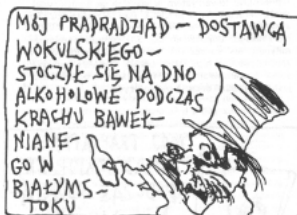 MÓJ PRAPRADZIAD — DOSTAWCA
WOKULSKIEGO —
STOCZYŁ SIĘ NA DNO
ALKOHOLOWE PODCZAS
KRACHU BAWEŁ-
NIANE-
GO W
BIAŁYMS-
TOKU